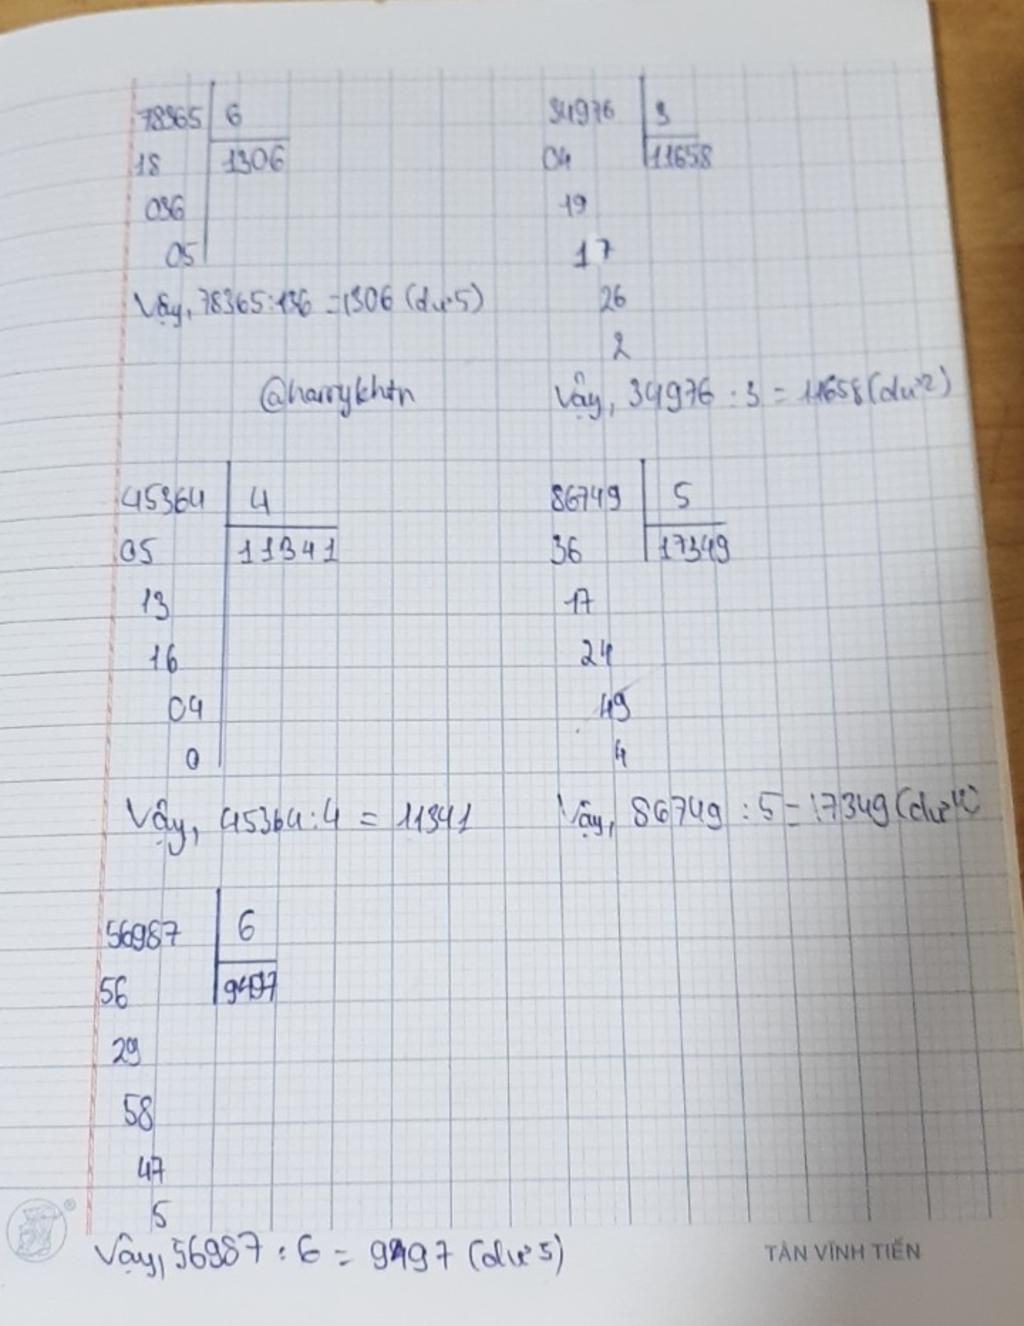 78365 6
18 1306
036
05
Vậy, 78365:136 = 1306 (dư 5)
34976 3
04 11658
19
17
26
2
Vậy, 34976 : 3 = 11658 (dư 2)
@harrykhtn
45364 4
05 11341
13
16
04
0
Vậy, 45364:4 = 11341
86749 5
36 17349
17
24
49
4
Vậy, 86749 : 5 = 17349 (dư 4)
56987 6
56 9497
29
58
47
5
Vậy, 56987 : 6 = 9497 (dư 5)
TÂN VĨNH TIẾN